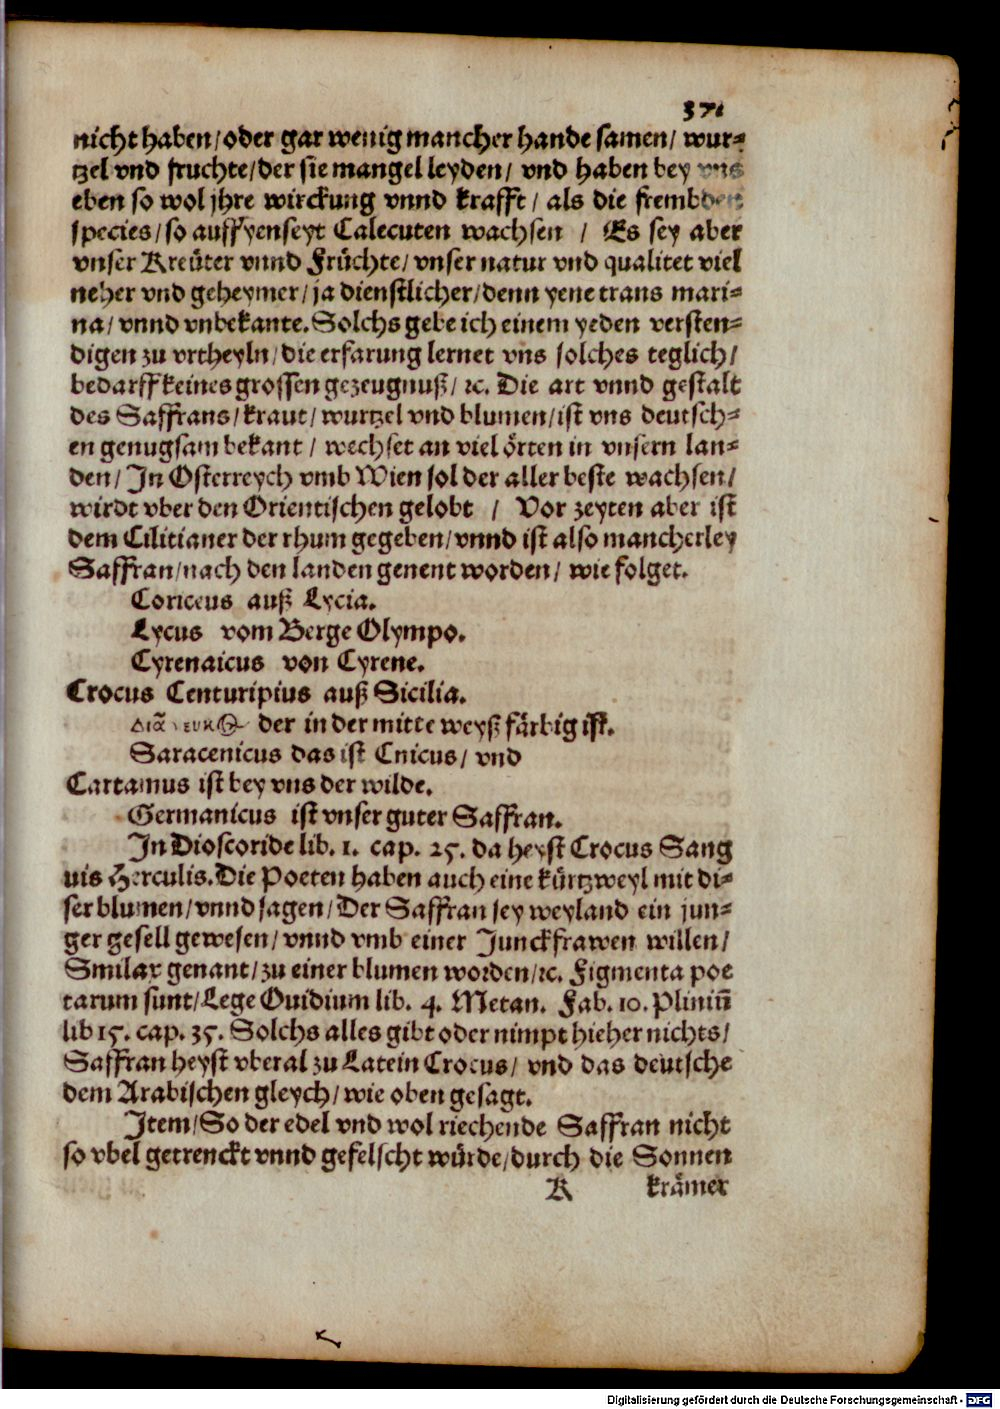 37.
nicht haben/oder gar wenig mancher hande samen/ wur=
tzel vnd fruchte/der sie mangel leyden/ vnd haben bey vns
eben so wol jhre wirckung vnnd krafft / als die frembden
species/so auff yenseyt Calecuten wachsen / Es sey aber
vnser Kreüter vnnd Früchte/ vnser natur vnd qualitet viel
neher vnd geheymer/ja dienstlicher/denn yene trans mari=
na/ vnnd vnbekante. Solchs gebe ich einem yeden versten=
digen zu vrtheyln/die erfarung lernet vns solches teglich/
bedarff keines grossen gezeugnuß/ ꝛc. Die art vnnd gestalt
des Saffrans/kraut/ wurtzel vnd blumen/ist vns deutsch=
en genugsam bekant / wechset an viel örten in vnsern lan=
den/ In Osterreych vmb Wien sol der aller beste wachsen/
wirdt vber den Orientischen gelobt / Vor zeyten aber ist
dem Cilitianer der rhum gegeben/vnnd ist also mancherley
Saffran/nach den landen genent worden/ wie folget.
Coriceus auß Lycia.
Lycus vom Berge Olympo.
Cyrenaicus von Cyrene.
Crocus Centuripius auß Sicilia.
der in der mitte weyß färbig ist.
Saracenicus das ist Cnicus/ vnd
Cartamus ist bey vns der wilde.
Germanicus ist vnser guter Saffran.
In Dioscoride lib. 1. cap. 25. da heyst Crocus Sang
uis Herculis. Die Poeten haben auch eine kürtzweyl mit di=
ser blumen/vnnd sagen/Der Saffran sey weyland ein jun=
ger gesell gewesen/ vnnd vmb einer Junckfrawen willen/
Smilax genant/zu einer blumen worden/ꝛc. Figmenta poe
tarum sunt/Lege Ouidium lib. 4. Metan. Fab. 10. Pliniū
lib 15. cap. 35. Solchs alles gibt oder nimpt hieher nichts/
Saffran heyst vberal zu Latein Crocus/ vnd das deutsche
dem Arabischen gleych/ wie oben gesagt.
Item/So der edel vnd wol riechende Saffran nicht
so vbel getrenckt vnnd gefelscht würde/durch die Sonnen
K krämer
Digitalisierung gefördert durch die Deutsche Forschungsgemeinschaft - DFG